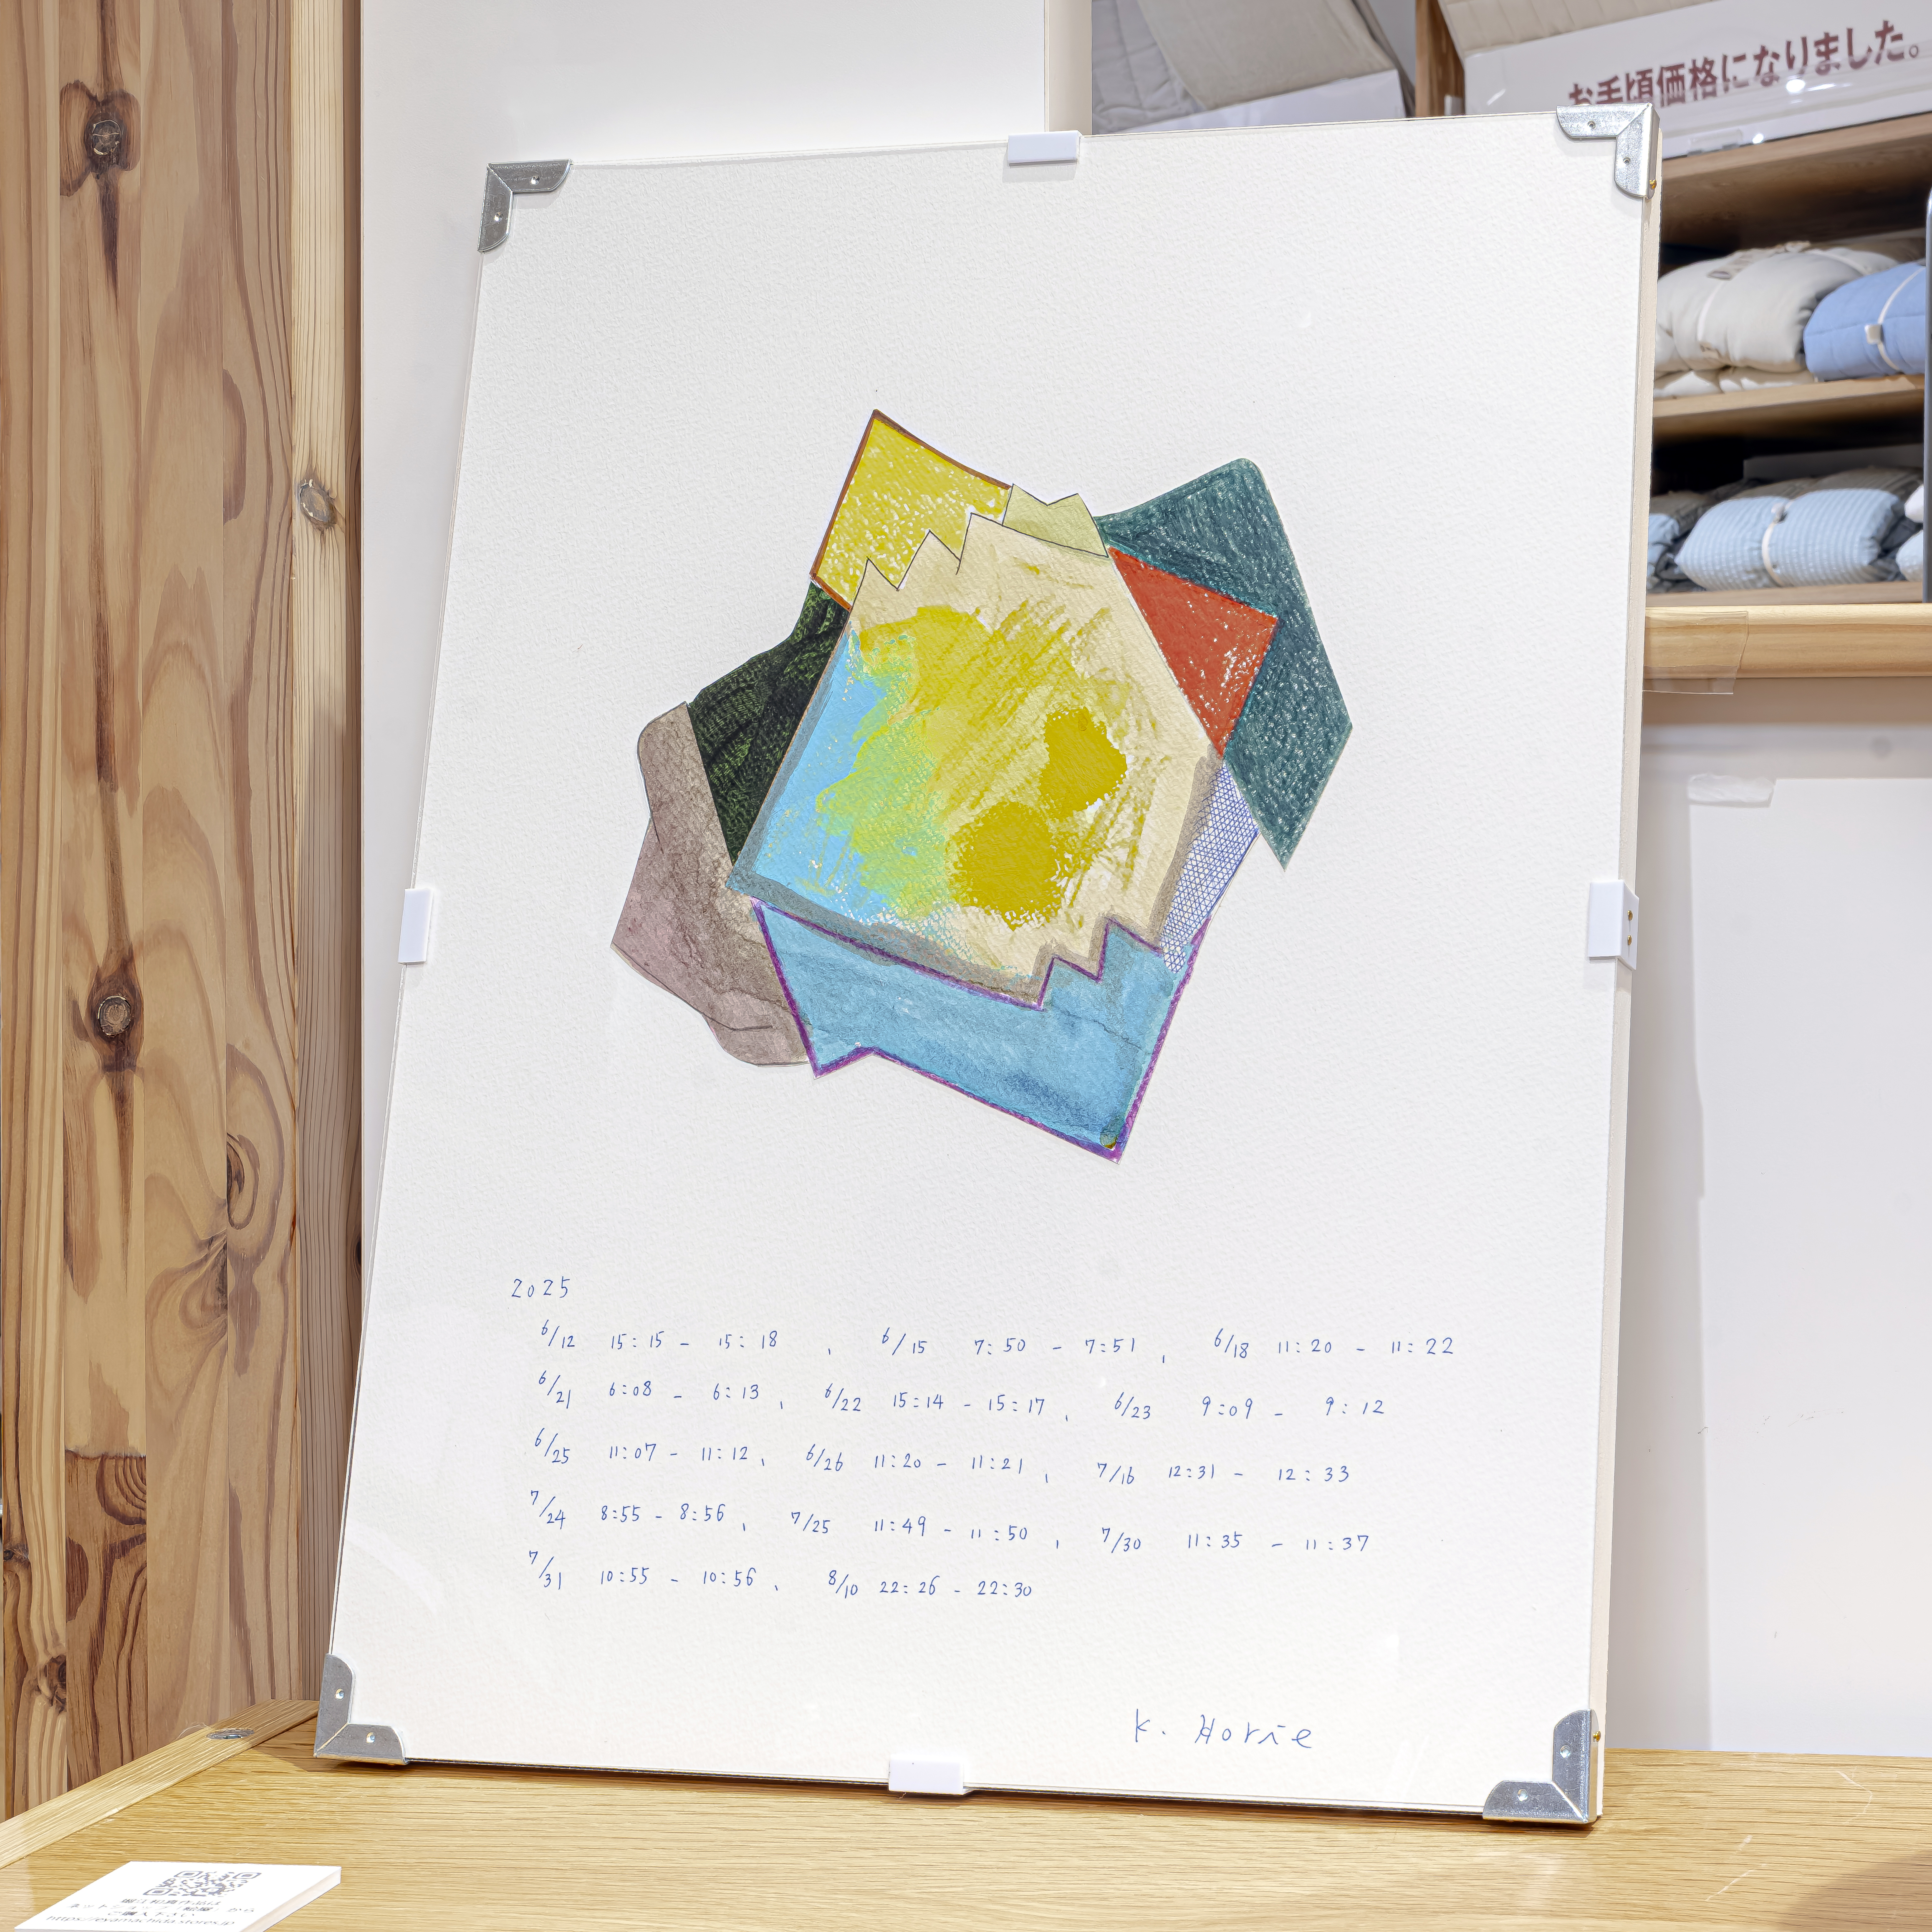 お手頃価格になりました。
2025
6/12 15:15 - 15:18 、 6/15 7:50 - 7:51 、 6/18 11:20 - 11:22
6/21 6:08 - 6:13 、 6/22 15:14 - 15:17 、 6/23 9:09 - 9:12
6/25 11:07 - 11:12 、 6/26 11:20 - 11:21 、 7/16 12:31 - 12:33
7/24 8:55 - 8:56 、 7/25 11:49 - 11:50 、 7/30 11:35 - 11:37
7/31 10:55 - 10:56 、 8/10 22:26 - 22:30
K. Horie
ご購入下さい